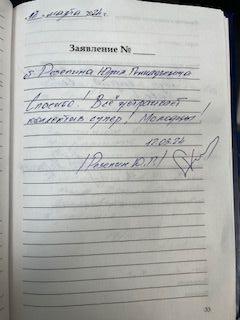 12 марта 2024г.
Заявление № ____
от Розепина Юрия Геннадьевича
Спасибо! Всё устраивает
коллектив супер! Молодцы!
12.03.24
/Розепин Ю.Г/
33